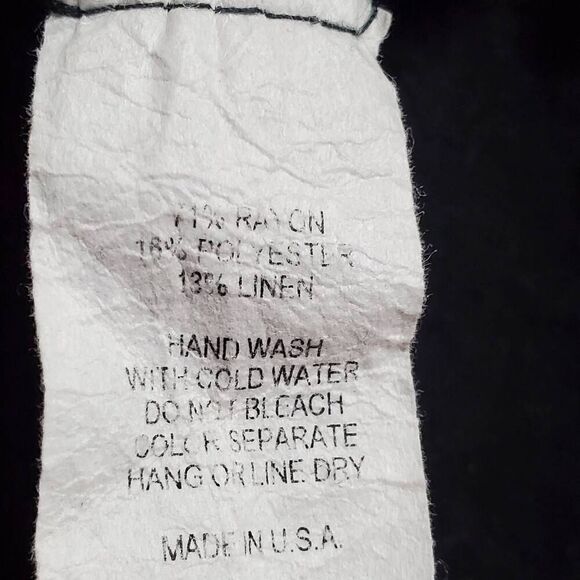 71% RAYON
16% POLYESTER
13% LINEN
HAND WASH
WITH COLD WATER
DO NOT BLEACH
COLOR SEPARATE
HANG OR LINE DRY
MADE IN U.S.A.